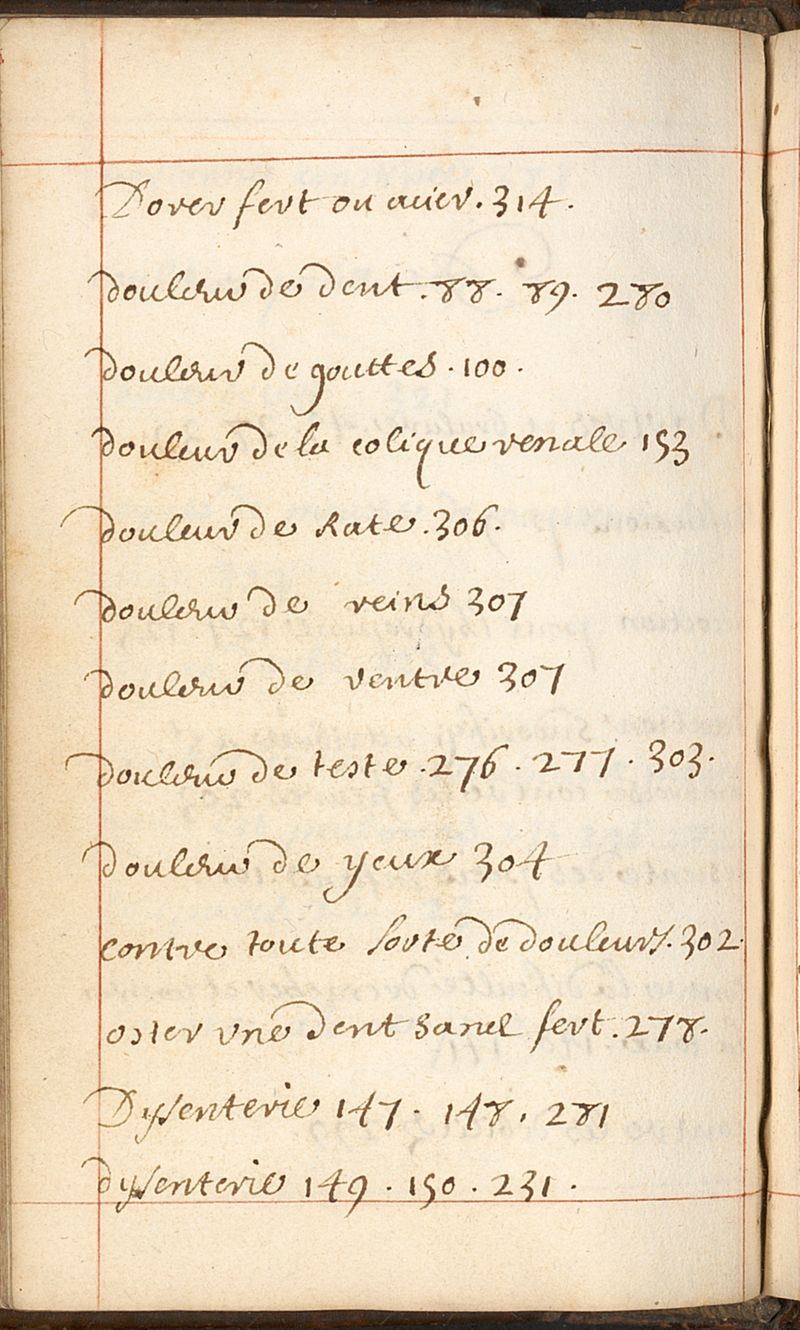 Dorer fert ou acier. 314.
douleur de dent. 88. 89. 280
douleur de gouttes. 100.
douleur de la colique renale 153
douleur de Rate. 306.
douleur de reins 307
douleur de ventre 307
douleur de teste. 276. 277. 303.
douleur de yeux 304
contre toute sorte de douleurs. 302.
oster vne dent sans fert. 278.
Dyssenterie 147. 148. 281
dyssenterie 149. 150. 231.